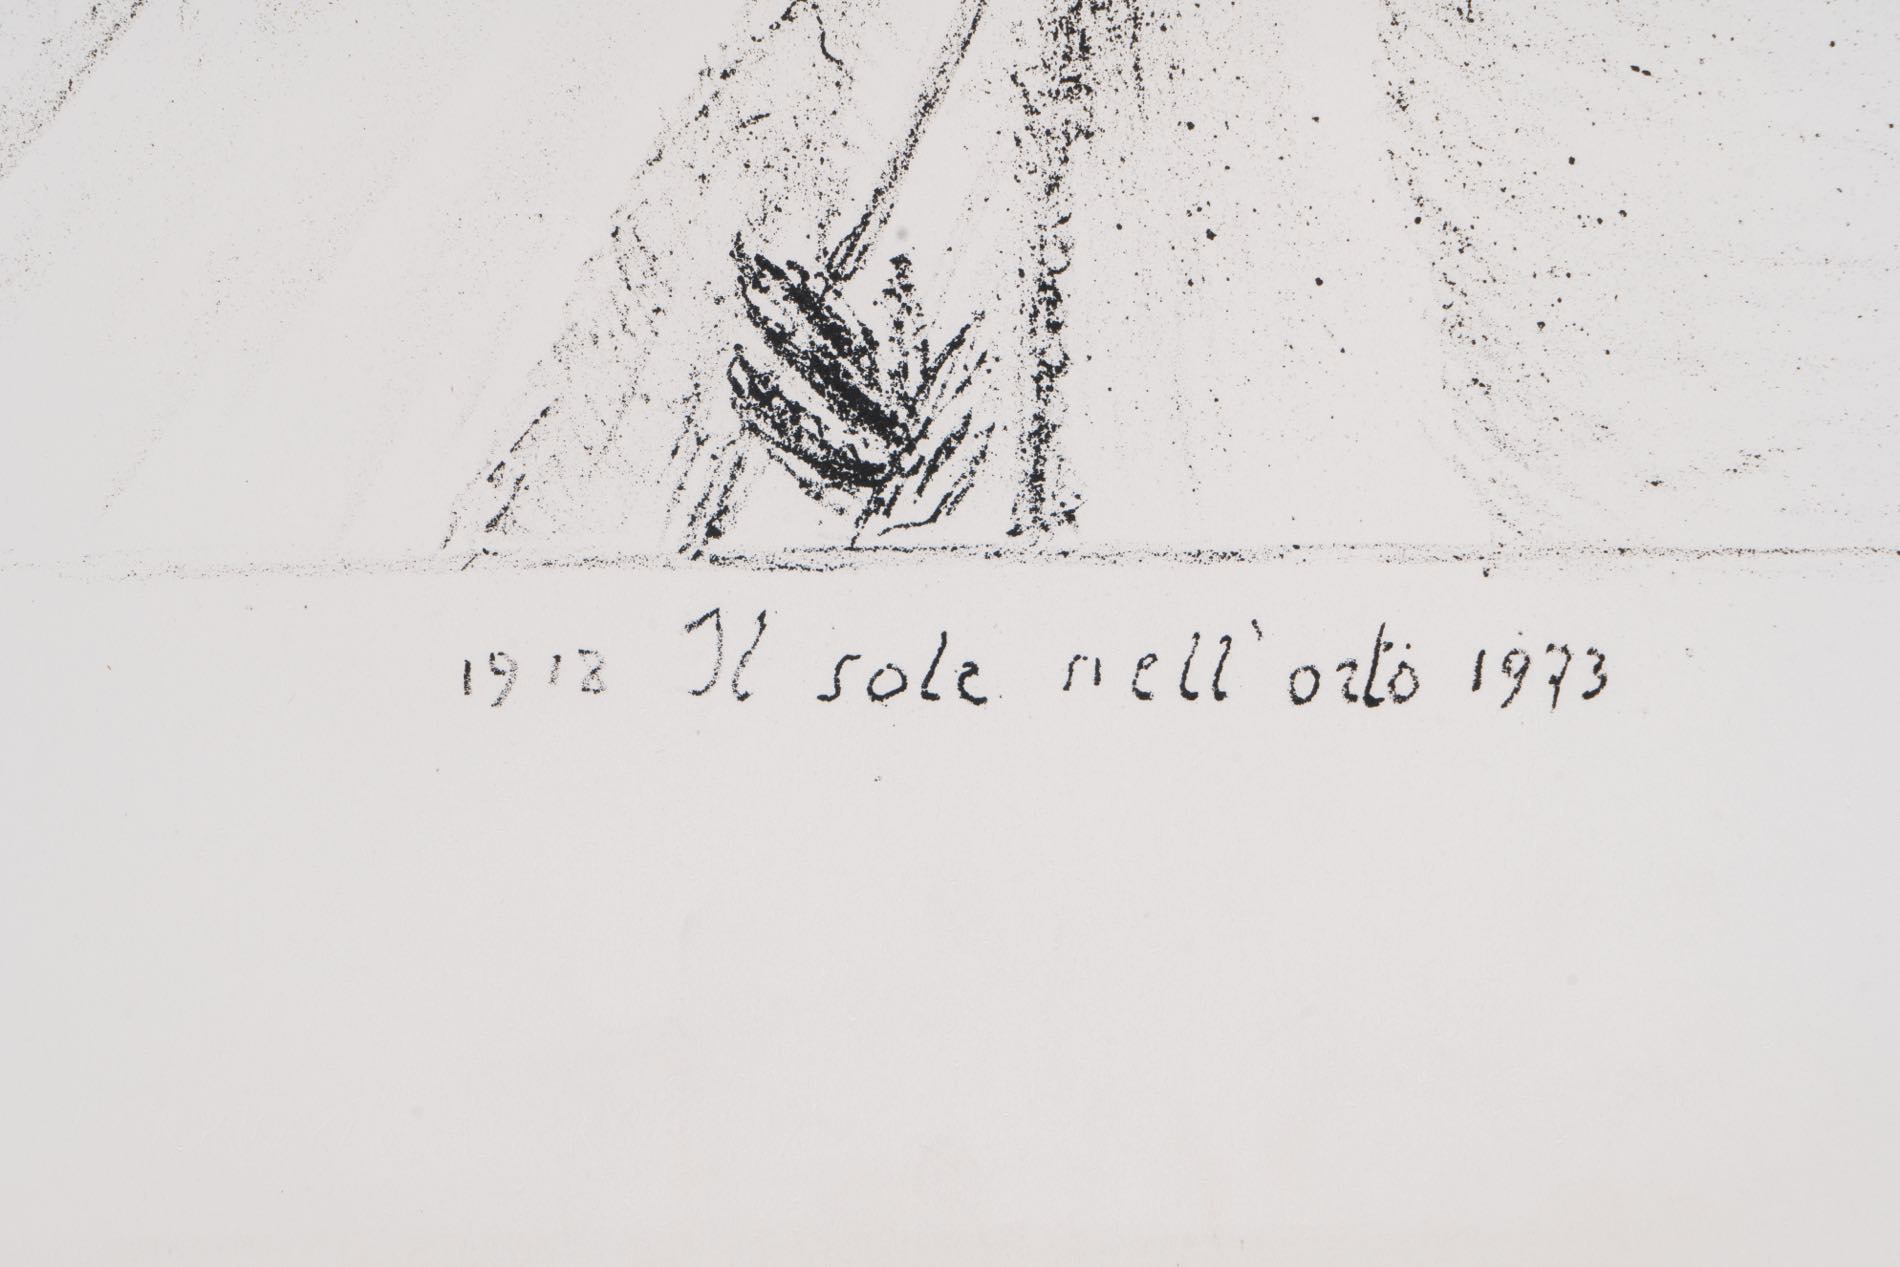 1918 Il sole nell' orto 1973